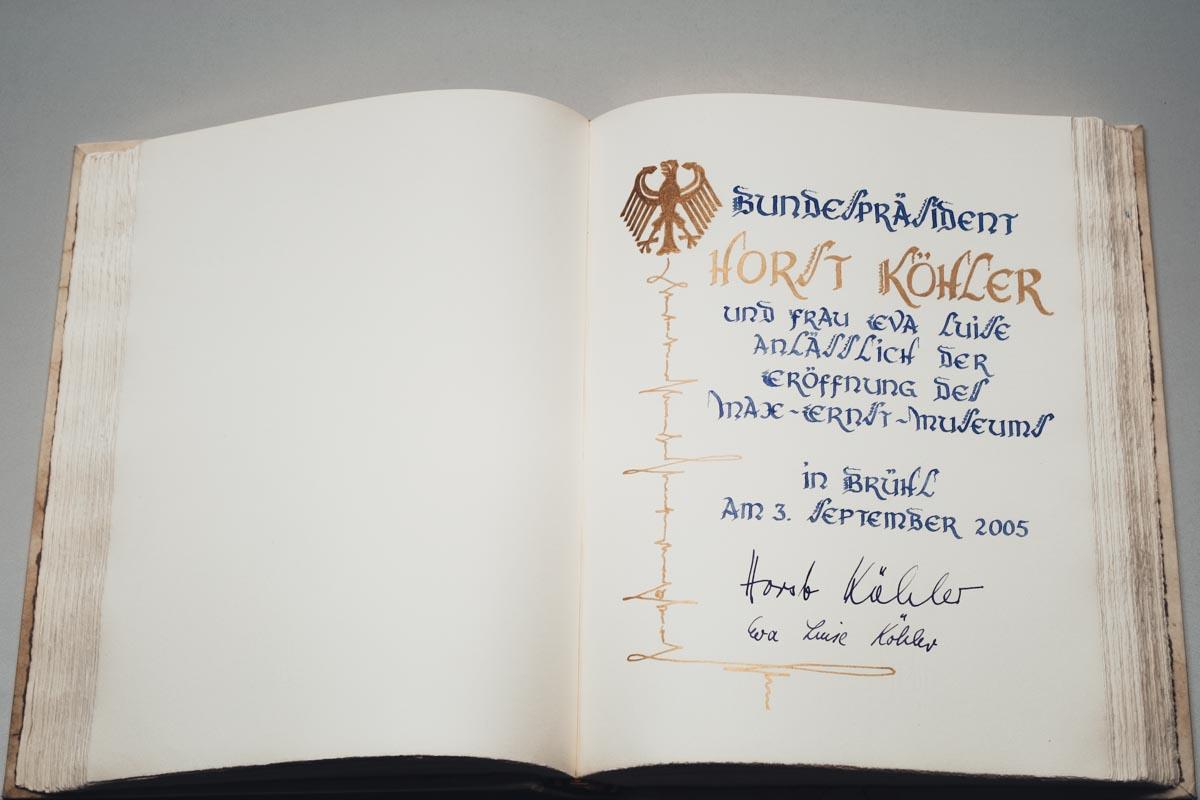 BUNDESPRÄSIDENT
HORST KÖHLER
UND FRAU EVA LUISE
ANLÄSSLICH DER
ERÖFFNUNG DES
MAX-ERNST-MUSEUMS
IN BRÜHL
AM 3. SEPTEMBER 2005
Horst Köhler
Eva Luise Köhler